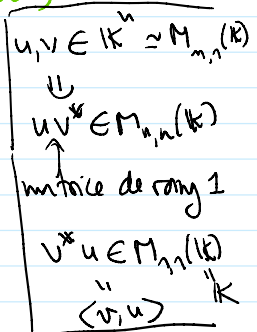 u,v ∈ 𝕂ⁿ ≃ M_{n,1}(𝕂)
⇓
uv* ∈ M_{n,n}(𝕂)
↑
matrice de rang 1
v*u ∈ M_{1,1}(𝕂)
" "
⟨v,u⟩ 𝕂